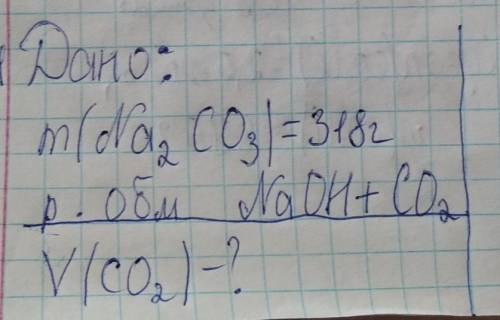 Дано:
m(Na₂CO₃)=318г
р. обм NaOH+CO₂
V(CO₂)-?